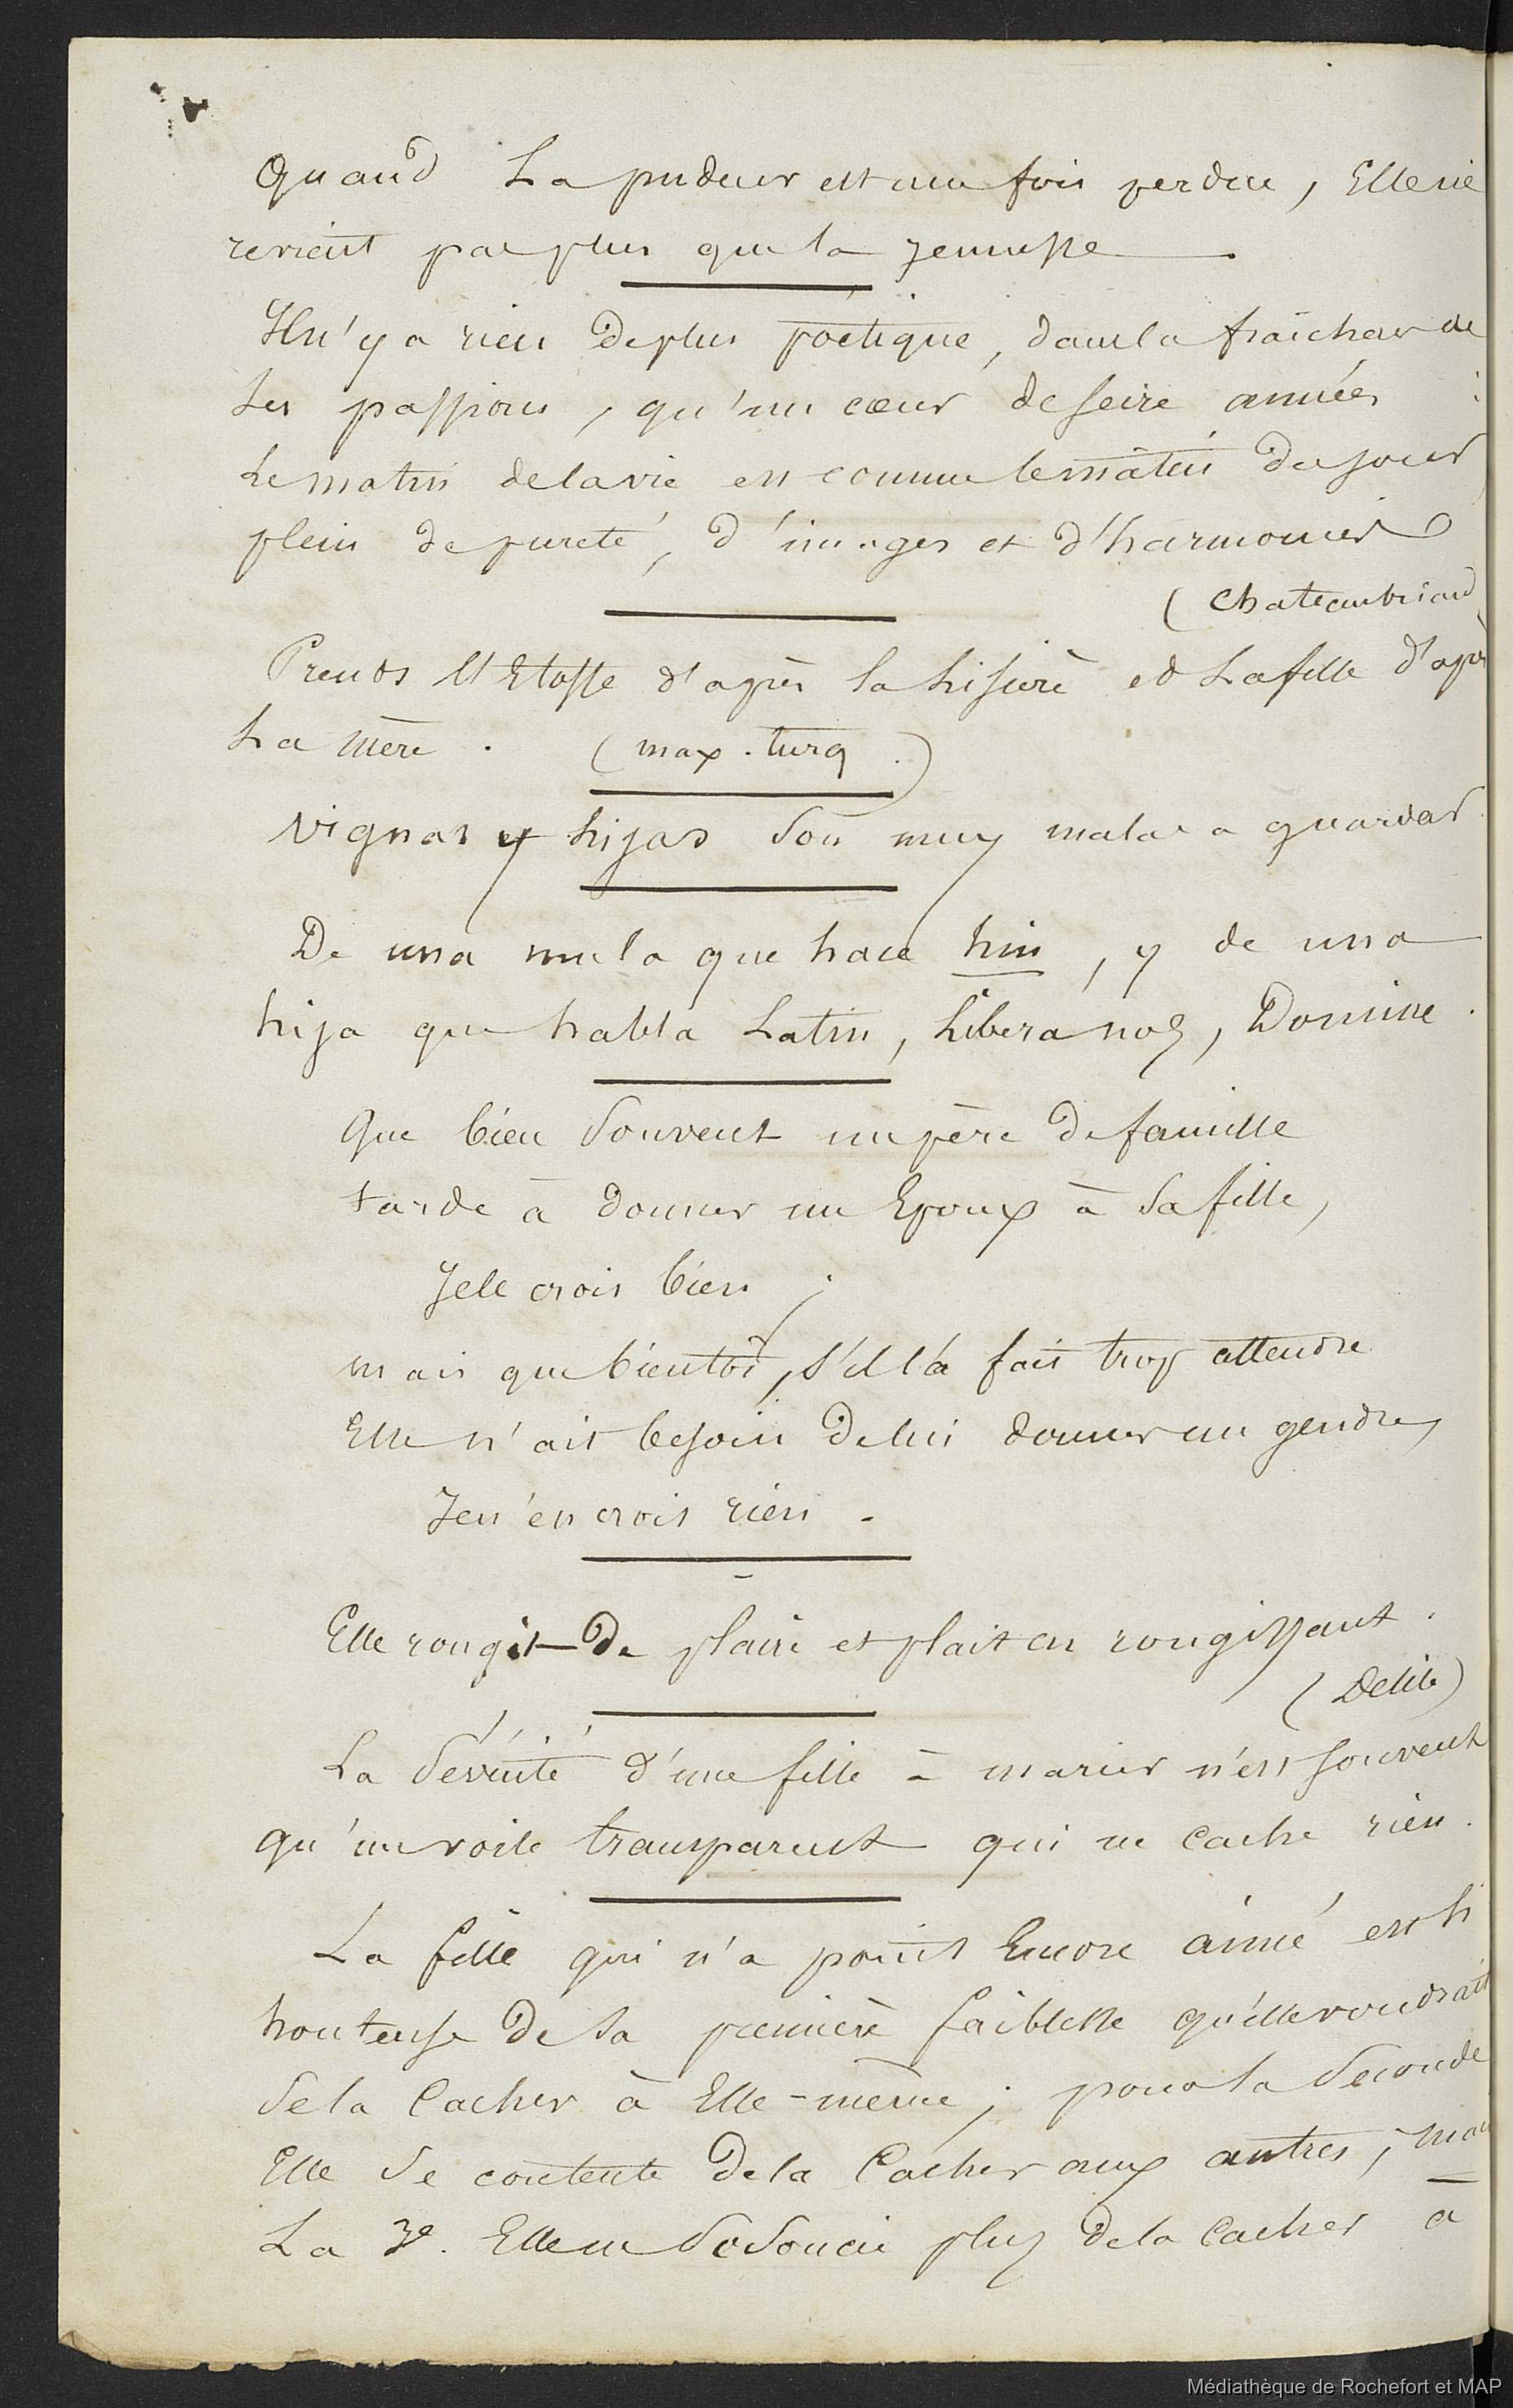 Quand La pudeur est une fois perdue, Elle ne
revient pas plus que la jeunesse.
Il n'y a rien de plus poétique, dans la fraîcheur de
ses passions, qu'un cœur de seize années :
Le matin de la vie est comme le matin du jour,
plein de pureté, d'images et d'harmonies
(Chateaubriand
Prends l'Etoffe d'après la lisière et La fille d'après
La mère. (max. turq.)
Vignas y hijas son muy malas a guardar.
De una mula que hace hin, y de una
hija que habla Latin, Libera nos, Domine.
Que bien souvent un père de famille
tarde à donner un Epoux à sa fille,
Je le crois bien ;
mais que bientôt, s'il l'a fait trop attendre
Elle n'ait besoin de lui donner un gendre,
Je n'en crois rien.
Elle rougit de plaire et plait en rougissant.
(Delile)
La sévérité d'une fille à marier n'est souvent
qu'un voile transparent qui ne cache rien.
La fille qui n'a point Encore aimé est si
honteuse de sa première faiblesse qu'elle voudrait
se la Cacher à Elle-même ; pour la seconde
Elle se contente de la Cacher aux autres ; mais
La 3e. Elle ne se soucie plus de la Cacher à
Médiathèque de Rochefort et MAP